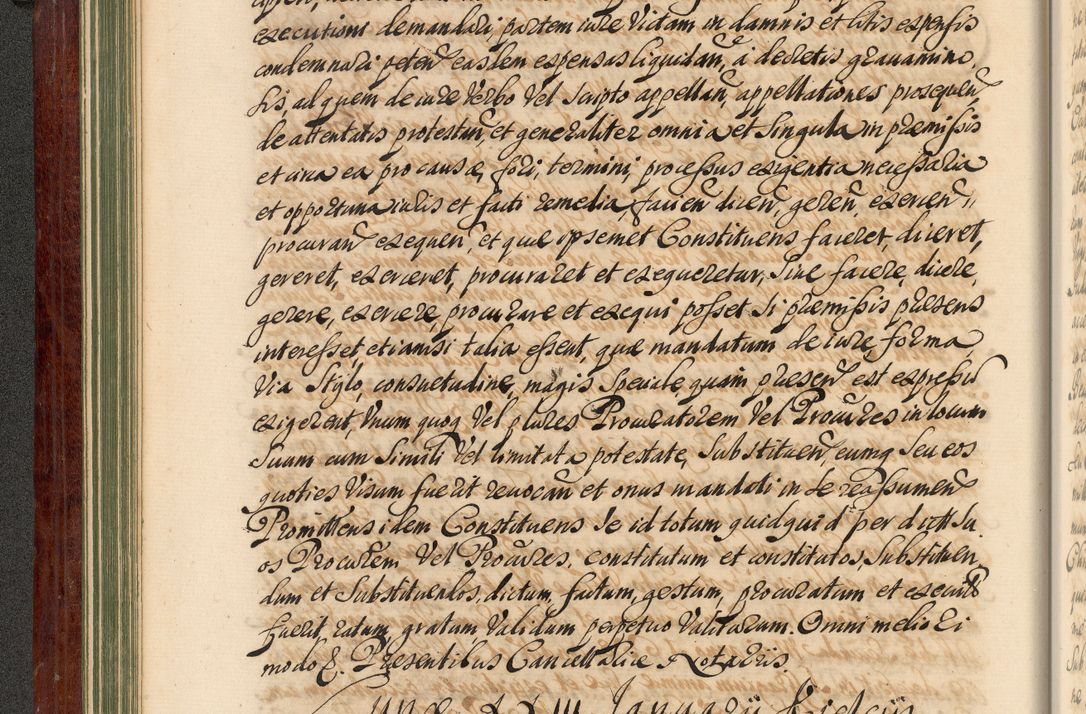 executioni demandari, partem iure victam in damnis et litis expensis
condemnari peten̄ easdem expensas liquidan̄, à decretis gravamino,
sis, ad quem de iure Verbo Vel scripto appellan̄, appellationes prosequen̄
de attentatis protestan̄, et generaliter omnia et singula in præmissis
et circa ea pro causæ, fori, termini, processus exigentia necessaria
et opportuna iuris et facti remedia, facien̄ dicen̄, geren̄, exercen̄,
procuran̄ exequen̄, et quæ ipsemet Constituens faceret, diceret,
gereret, exerceret, procuraret et exequeretur, Sive facere, dicere,
gerere, exercere, procurare et exequi posset Si præmissis præsens
interesset, etiamsi talia essent, quæ mandatum de iure, forma
Via Stylo, consuetudine, magis Speciale quam præsen̄ est expressū
exigerent, Unum quoq Vel plures Procuratorem Vel Procūres in locum
Suam cum Simili Vel limitata potestate, Substituen̄, eumq Seu eos
quoties Visum fuerit revocan̄ et onus mandati in se reassumen̄
Promittens idem Constituens Se id totum quidquid per dictū Su
os Procūrem Vel Procūres, constitutum et constitutos, Substituen,
dum et Substituendos, dictum, factum, gestum, procuratum et executū
fuerit, ratum, gratum Validum perpetuo Valiturum. Omni meliori
modo &. Præsentibus Cancellariæ Notariis.
Januarÿ